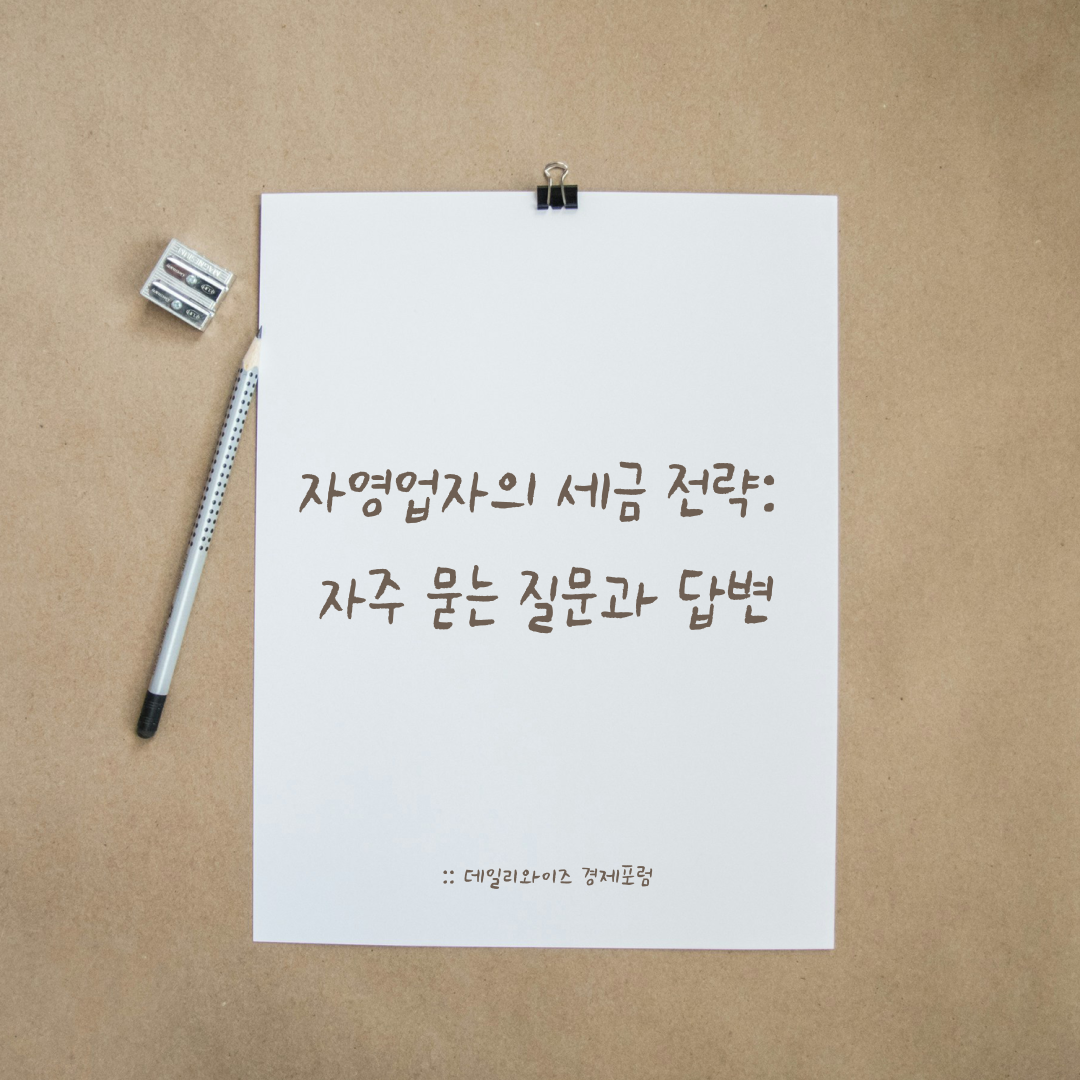 자영업자의 세금 전략:
자주 묻는 질문과 답변
:: 데일리와이즈 경제포럼